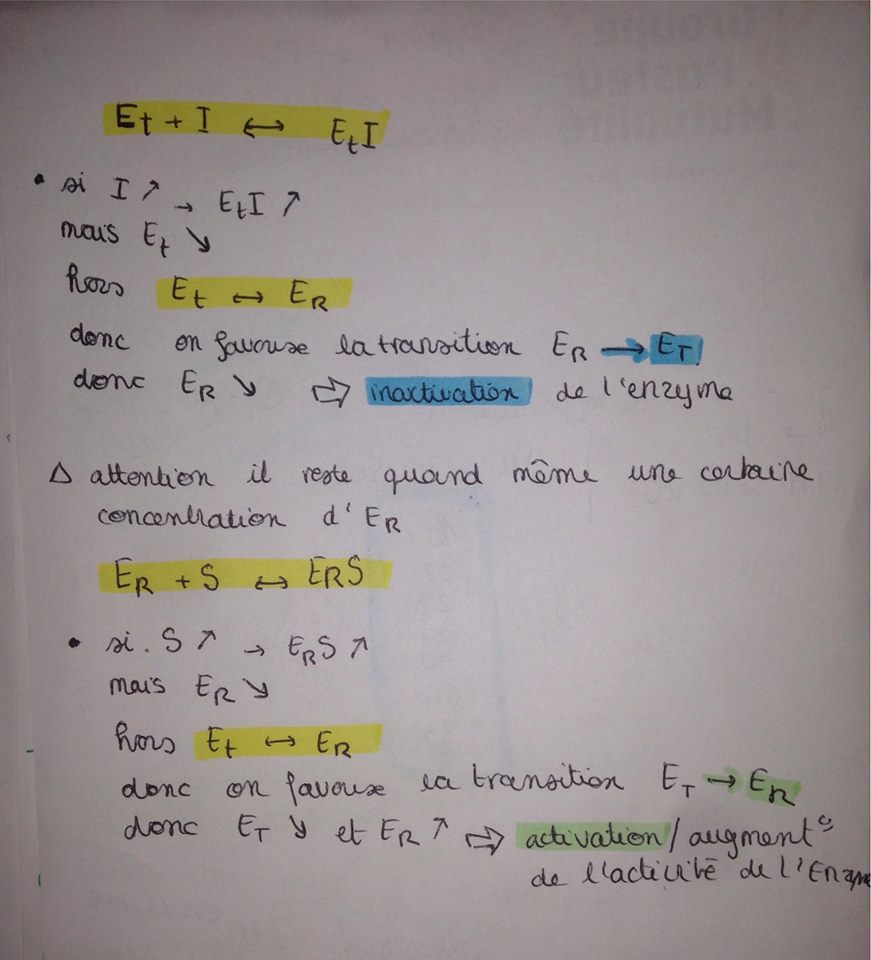 Et + I ↔ EtI
• si I ↗ → EtI ↗
mais Et ↘
hors Et ↔ ER
donc on favorise la transition ER → ET
donc ER ↘ ⇨ inactivation de l'enzyme
Δ attention il reste quand même une certaine
concentration d'ER
ER + S ↔ ERS
• si. S ↗ → ERS ↗
mais ER ↘
hors Et ↔ ER
donc on favorise la transition ET → ER
donc ET ↘ et ER ↗ ⇨ activation / augmentº
de l'activité de l'Enzyme